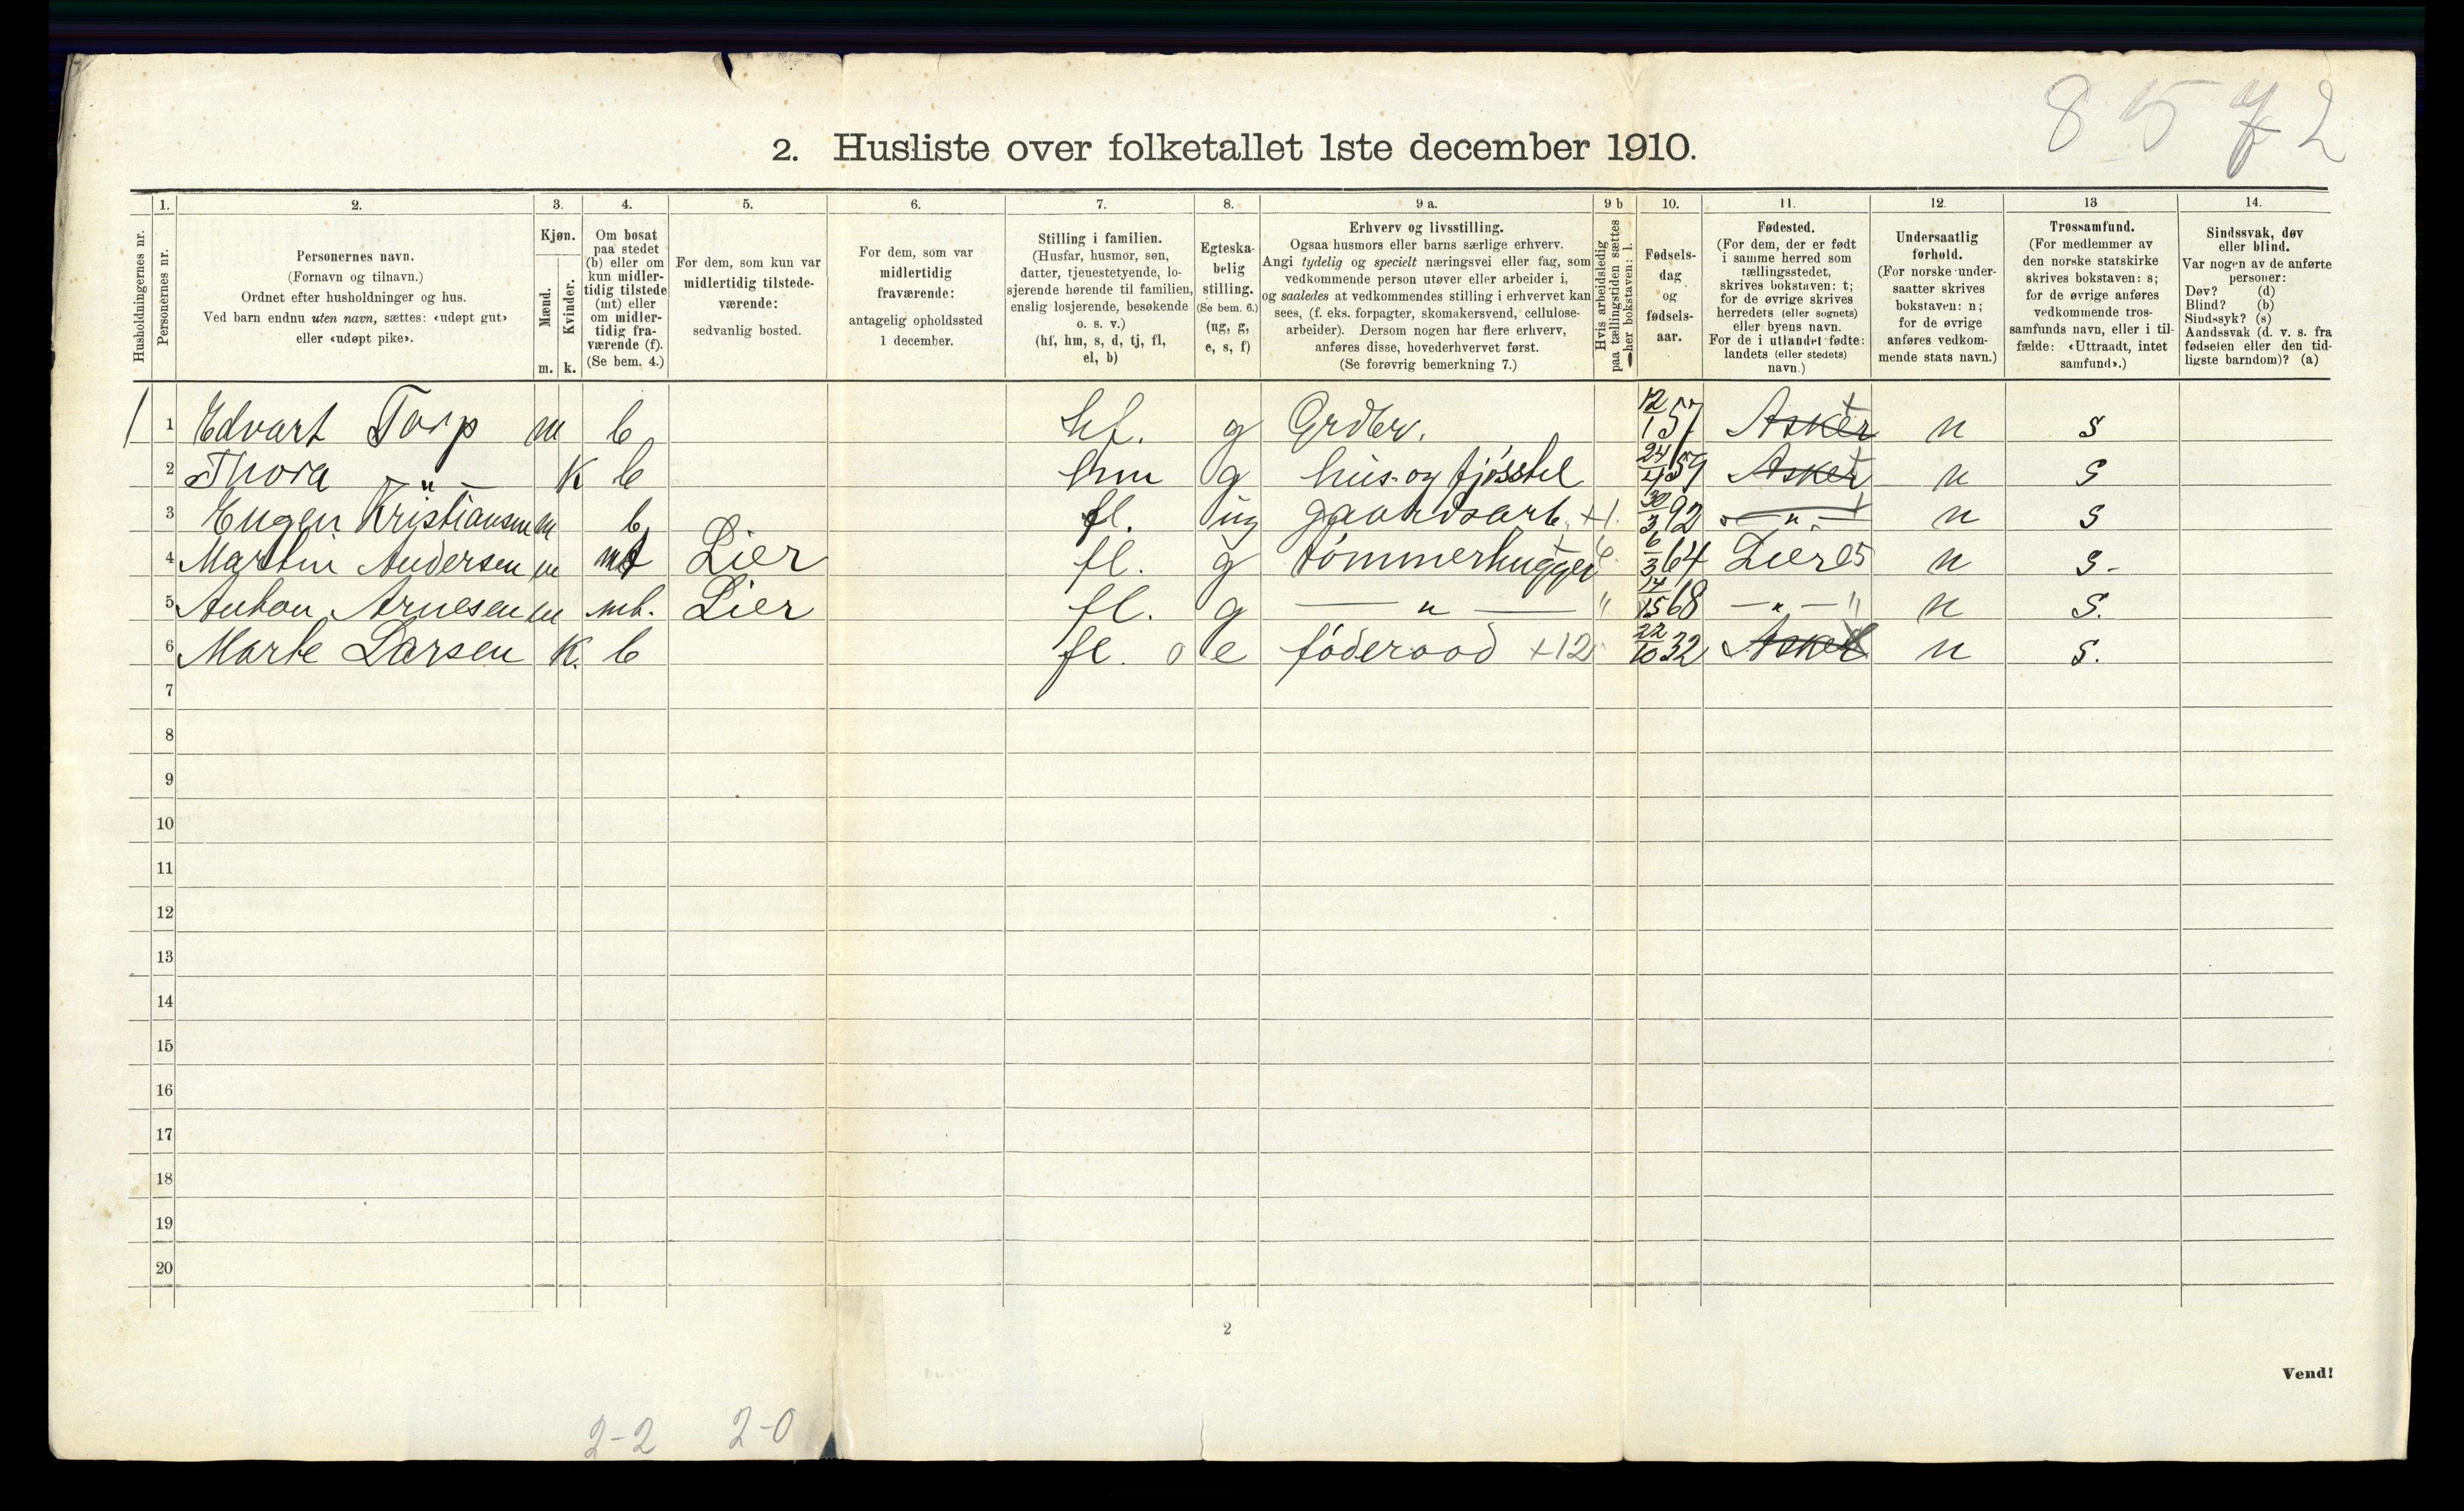 8 5 7 2
2. Husliste over folketallet 1ste december 1910.
Husholdningernes nr.
1.
Personernes nr.
2.
Personernes navn.
(Fornavn og tilnavn.)
Ordnet efter husholdninger og hus.
Ved barn endnu uten navn, sættes: «udøpt gut»
eller «udøpt pike».
3.
Kjøn.
Mænd.
Kvinder.
m. k.
4.
Om bosat
paa stedet
(b) eller om
kun midler-
tidig tilstede
(mt) eller
om midler-
tidig fra-
værende (f).
(Se bem. 4.)
5.
For dem, som kun var
midlertidig tilstede-
værende:
sedvanlig bosted.
6.
For dem, som var
midlertidig
fraværende:
antagelig opholdssted
1 december.
7.
Stilling i familien.
(Husfar, husmor, søn,
datter, tjenestetyende, lo-
sjerende hørende til familien,
enslig losjerende, besøkende
o. s. v.)
(hf, hm, s, d, tj, fl,
el, b)
8.
Egteska-
belig
stilling.
(Se bem. 6.)
(ug, g,
e, s, f)
9 a.
Erhverv og livsstilling.
Ogsaa husmors eller barns særlige erhverv.
Angi tydelig og specielt næringsvei eller fag, som
vedkommende person utøver eller arbeider i,
og saaledes at vedkommendes stilling i erhvervet kan
sees, (f. eks. forpagter, skomakersvend, cellulose-
arbeider). Dersom nogen har flere erhverv,
anføres disse, hovederhvervet først.
(Se forøvrig bemerkning 7.)
9 b
Hvis arbeidsledig
paa tællingstiden sættes
her bokstaven: l.
10.
Fødsels-
dag
og
fødsels-
aar.
11.
Fødested.
(For dem, der er født
i samme herred som
tællingsstedet,
skrives bokstaven: t;
for de øvrige skrives
herredets (eller sognets)
eller byens navn.
For de i utlandet fødte:
landets (eller stedets)
navn.)
12.
Undersaatlig
forhold.
(For norske under-
saatter skrives
bokstaven: n;
for de øvrige
anføres vedkom-
mende stats navn.)
13
Trossamfund.
(For medlemmer av
den norske statskirke
skrives bokstaven: s;
for de øvrige anføres
vedkommende tros-
samfunds navn, eller i til-
fælde: «Uttraadt, intet
samfund».)
14.
Sindssvak, døv
eller blind.
Var nogen av de anførte
personer:
Døv? (d)
Blind? (b)
Sindssyk? (s)
Aandssvak (d. v. s. fra
fødselen eller den tid-
ligste barndom)? (a)
1 1 Edvart Torp m b hf. g Grdbr. 12/1 57 Asker t n s
2 Thora —"— k b hm g hus- og fjøsstel 24/4 59 Asker t n s
3 Eugen Kristiansen m b fl. ug gaardsarb. +1. 30/3 92 —"— t n s
4 Martin Andersen m mt Lier fl. g tømmerhugger 6/3 64 Lier 25 n s.
5 Anton Arnesen m mt. Lier fl. g —"— " 14/15 68 —"— " n s.
6 Marte Larsen k. b fl. o e føderaad +12 22/10 32 Asker n s.
7
8
9
10
11
12
13
14
15
16
17
18
19
20
2
Vend!
2-2 2-0